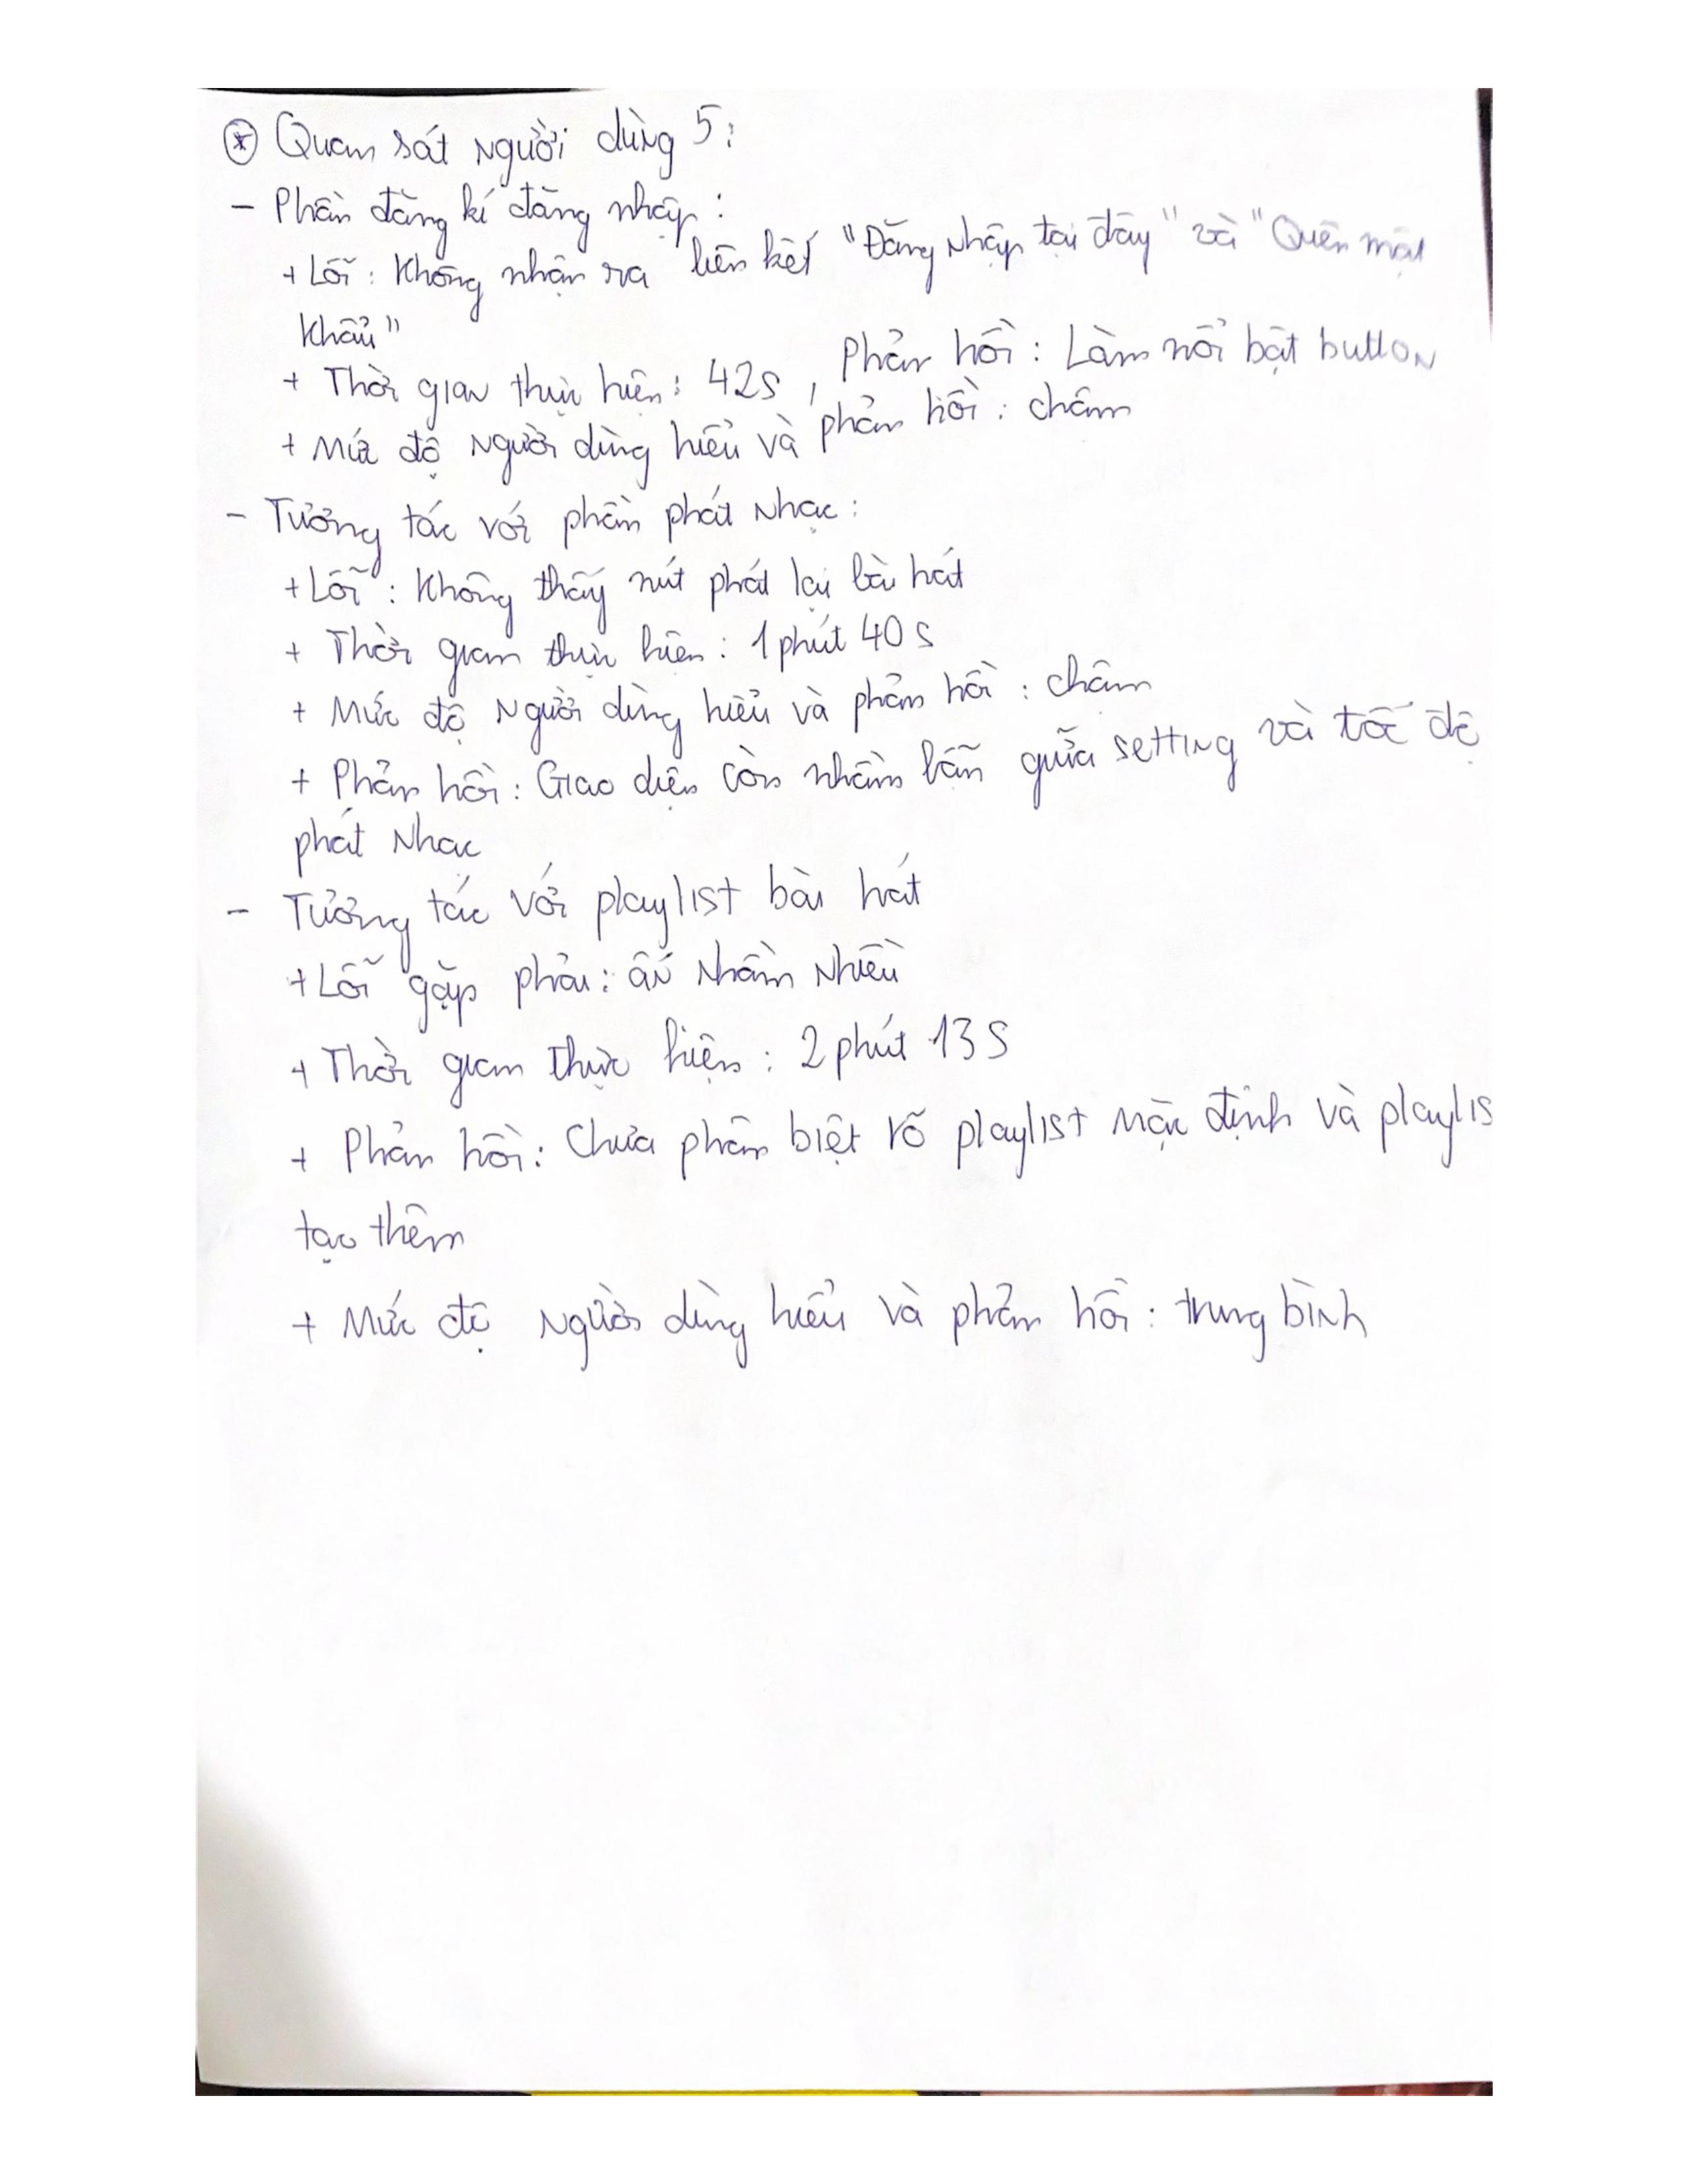 ⊛ Quan sát người dùng 5:
- Phần đăng kí đăng nhập:
+ Lỗi: Không nhận ra liên kết "Đăng nhập tại đây" và "Quên mật
khẩu"
+ Thời gian thực hiện: 42s, Phản hồi: Làm nổi bật button
+ Mức độ người dùng hiểu và phản hồi: chậm
- Tương tác với phần phát nhạc:
+ Lỗi: Không thấy nút phát lại bài hát
+ Thời gian thực hiện: 1 phút 40 s
+ Mức độ người dùng hiểu và phản hồi: chậm
+ Phản hồi: Giao diện còn nhầm lẫn giữa setting và tốc độ
phát nhạc
- Tương tác với playlist bài hát
+ Lỗi gặp phải: ấn nhầm nhiều
+ Thời gian thực hiện: 2 phút 13 s
+ Phản hồi: Chưa phân biệt rõ playlist mặc định và playlis
tạo thêm
+ Mức độ người dùng hiểu và phản hồi: trung bình